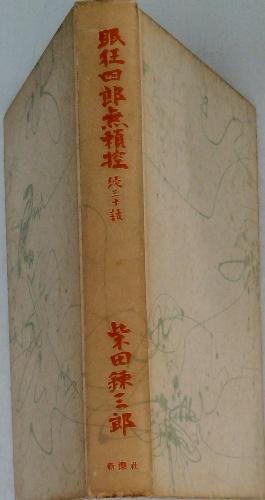 眠狂四郎無頼控
続三十話
柴田錬三郎
新潮社